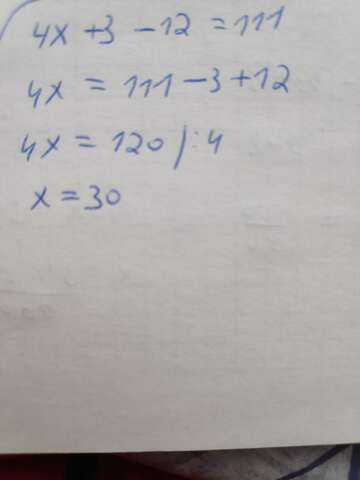 4x + 3 - 12 = 111
4x = 111 - 3 + 12
4x = 120 / : 4
x = 30